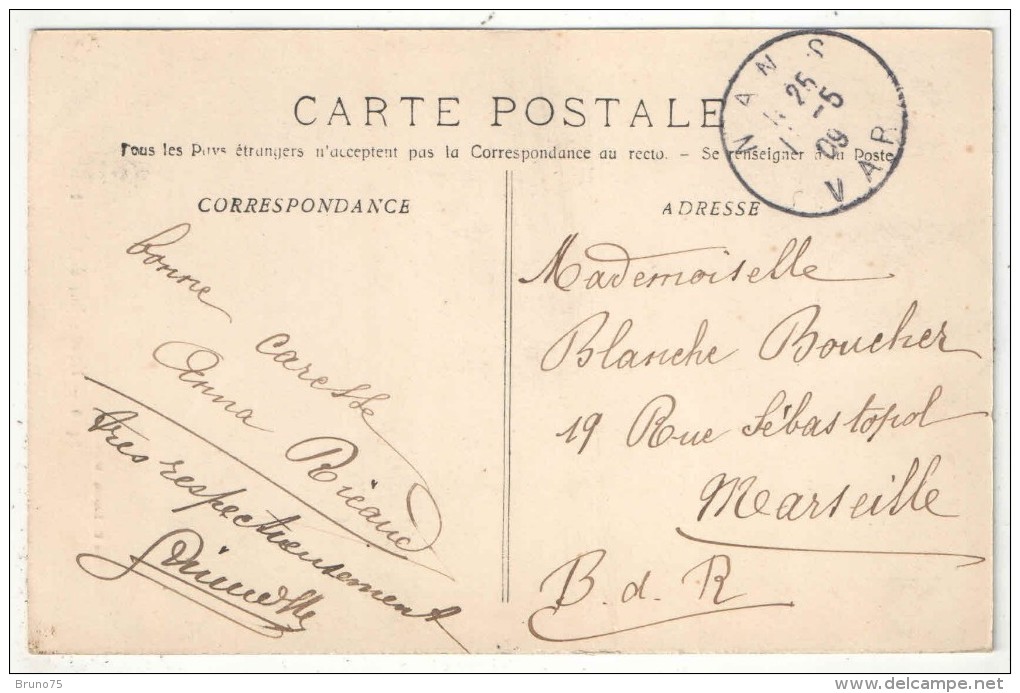 CARTE POSTALE
Tous les Pays étrangers n'acceptent pas la Correspondance au recto. - Se renseigner à la Poste
NANS
25 -5
09
VAR
CORRESPONDANCE
bonne
caresse
Anna Ricaud
très respectueusement
ADRESSE
Mademoiselle
Blanche Boucher
19 Rue Sébastopol
Marseille
B. d. R
Bruno75
delcampe.net